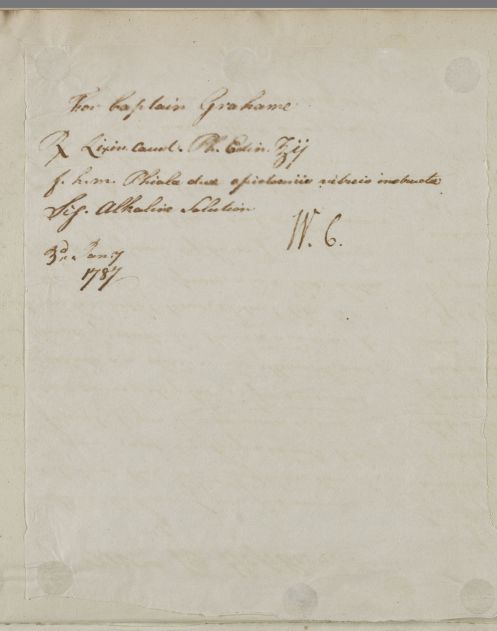 For Captain Grahame
℞ Lixiv. Caust. Ph. Edin. ℥ij
f. h.m. Phiala duæ epistomiis vitreis instructæ
Sig. Alkaline Solution
W. C.
3d. Jany
1787